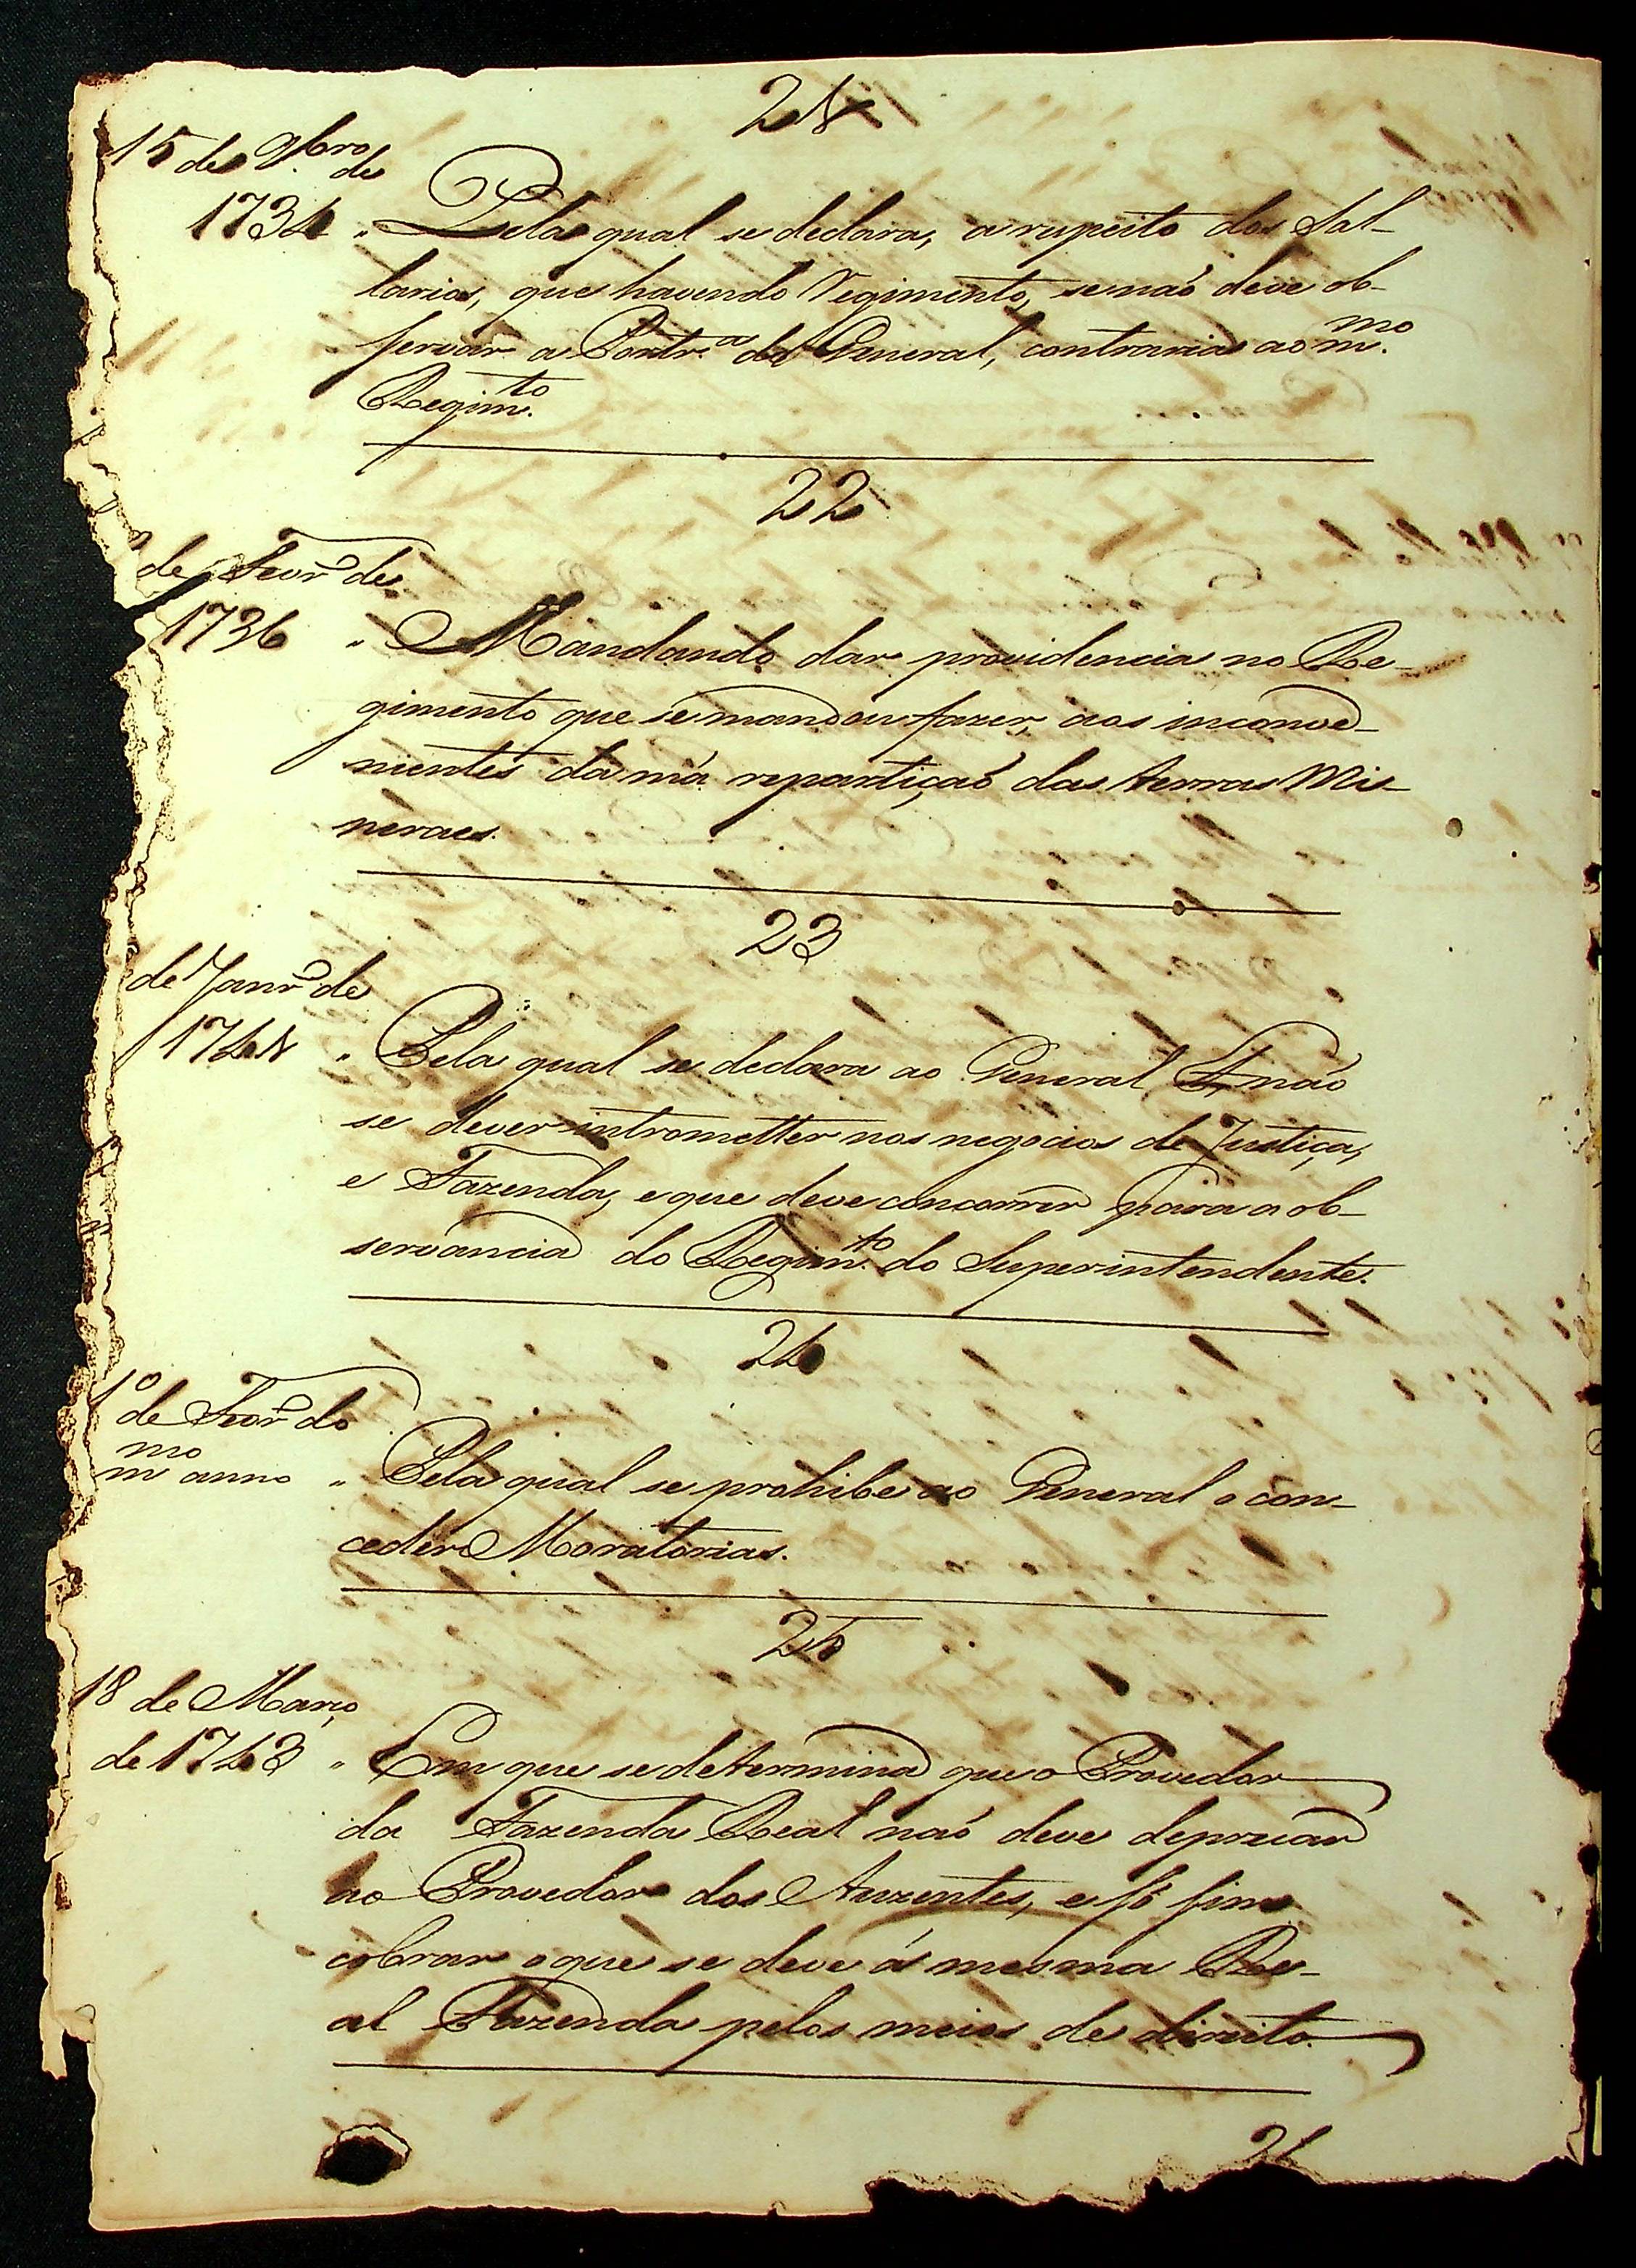 21
15 de 9bro de
1734 " Pela qual se declara, a respeito dos Sal-
larios, que havendo Regimento, se naõ deve ob-
servar a Portr.a do General, contraria ao m.mo
Regim.to
22
de Fevr.o de
1736 " Mandando dar providencia no Re-
gimento que se mandou fazer, aos inconve-
nientes da má repartiçaõ das terras Mi-
neraes.
23
de Janr.o de
1741 " Pela qual se declara ao General não
se dever intrometter nos negocios de Justiça,
e Fazenda, e que deve concorrer para a ob-
servancia do Regim.to do Superintendente.
24
1º de Fevr.o do
m.mo anno " Pela qual se prohibe ao General o con-
ceder Moratorias.
25
18 de Março
de 1743 " Em que se determina que o Provedor
da Fazenda Real naõ deve deprecar
ao Provedor dos Auzentes, e só sim
cobrar o que se deve á mesma Re-
al Fazenda pelos meios de direito.